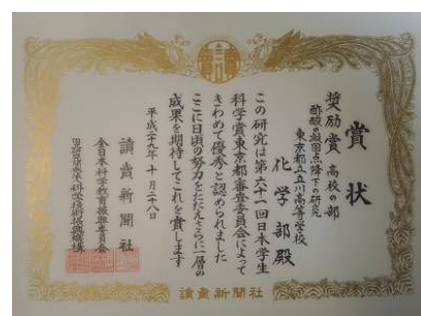 賞状
奨励賞 高校の部
酢酸の凝固点降下の研究
東京都立立川高等学校
化学部殿
この研究は第六十一回日本学生
科学賞東京都審査委員会によって
きわめて優秀と認められました
ここに日頃の努力をたたえさらに一層の
成果を期待してこれを賞します
平成二十九年十月二十八日
讀賣新聞社
全日本科学教育振興委員会
科学技術振興機構
讀賣新聞社